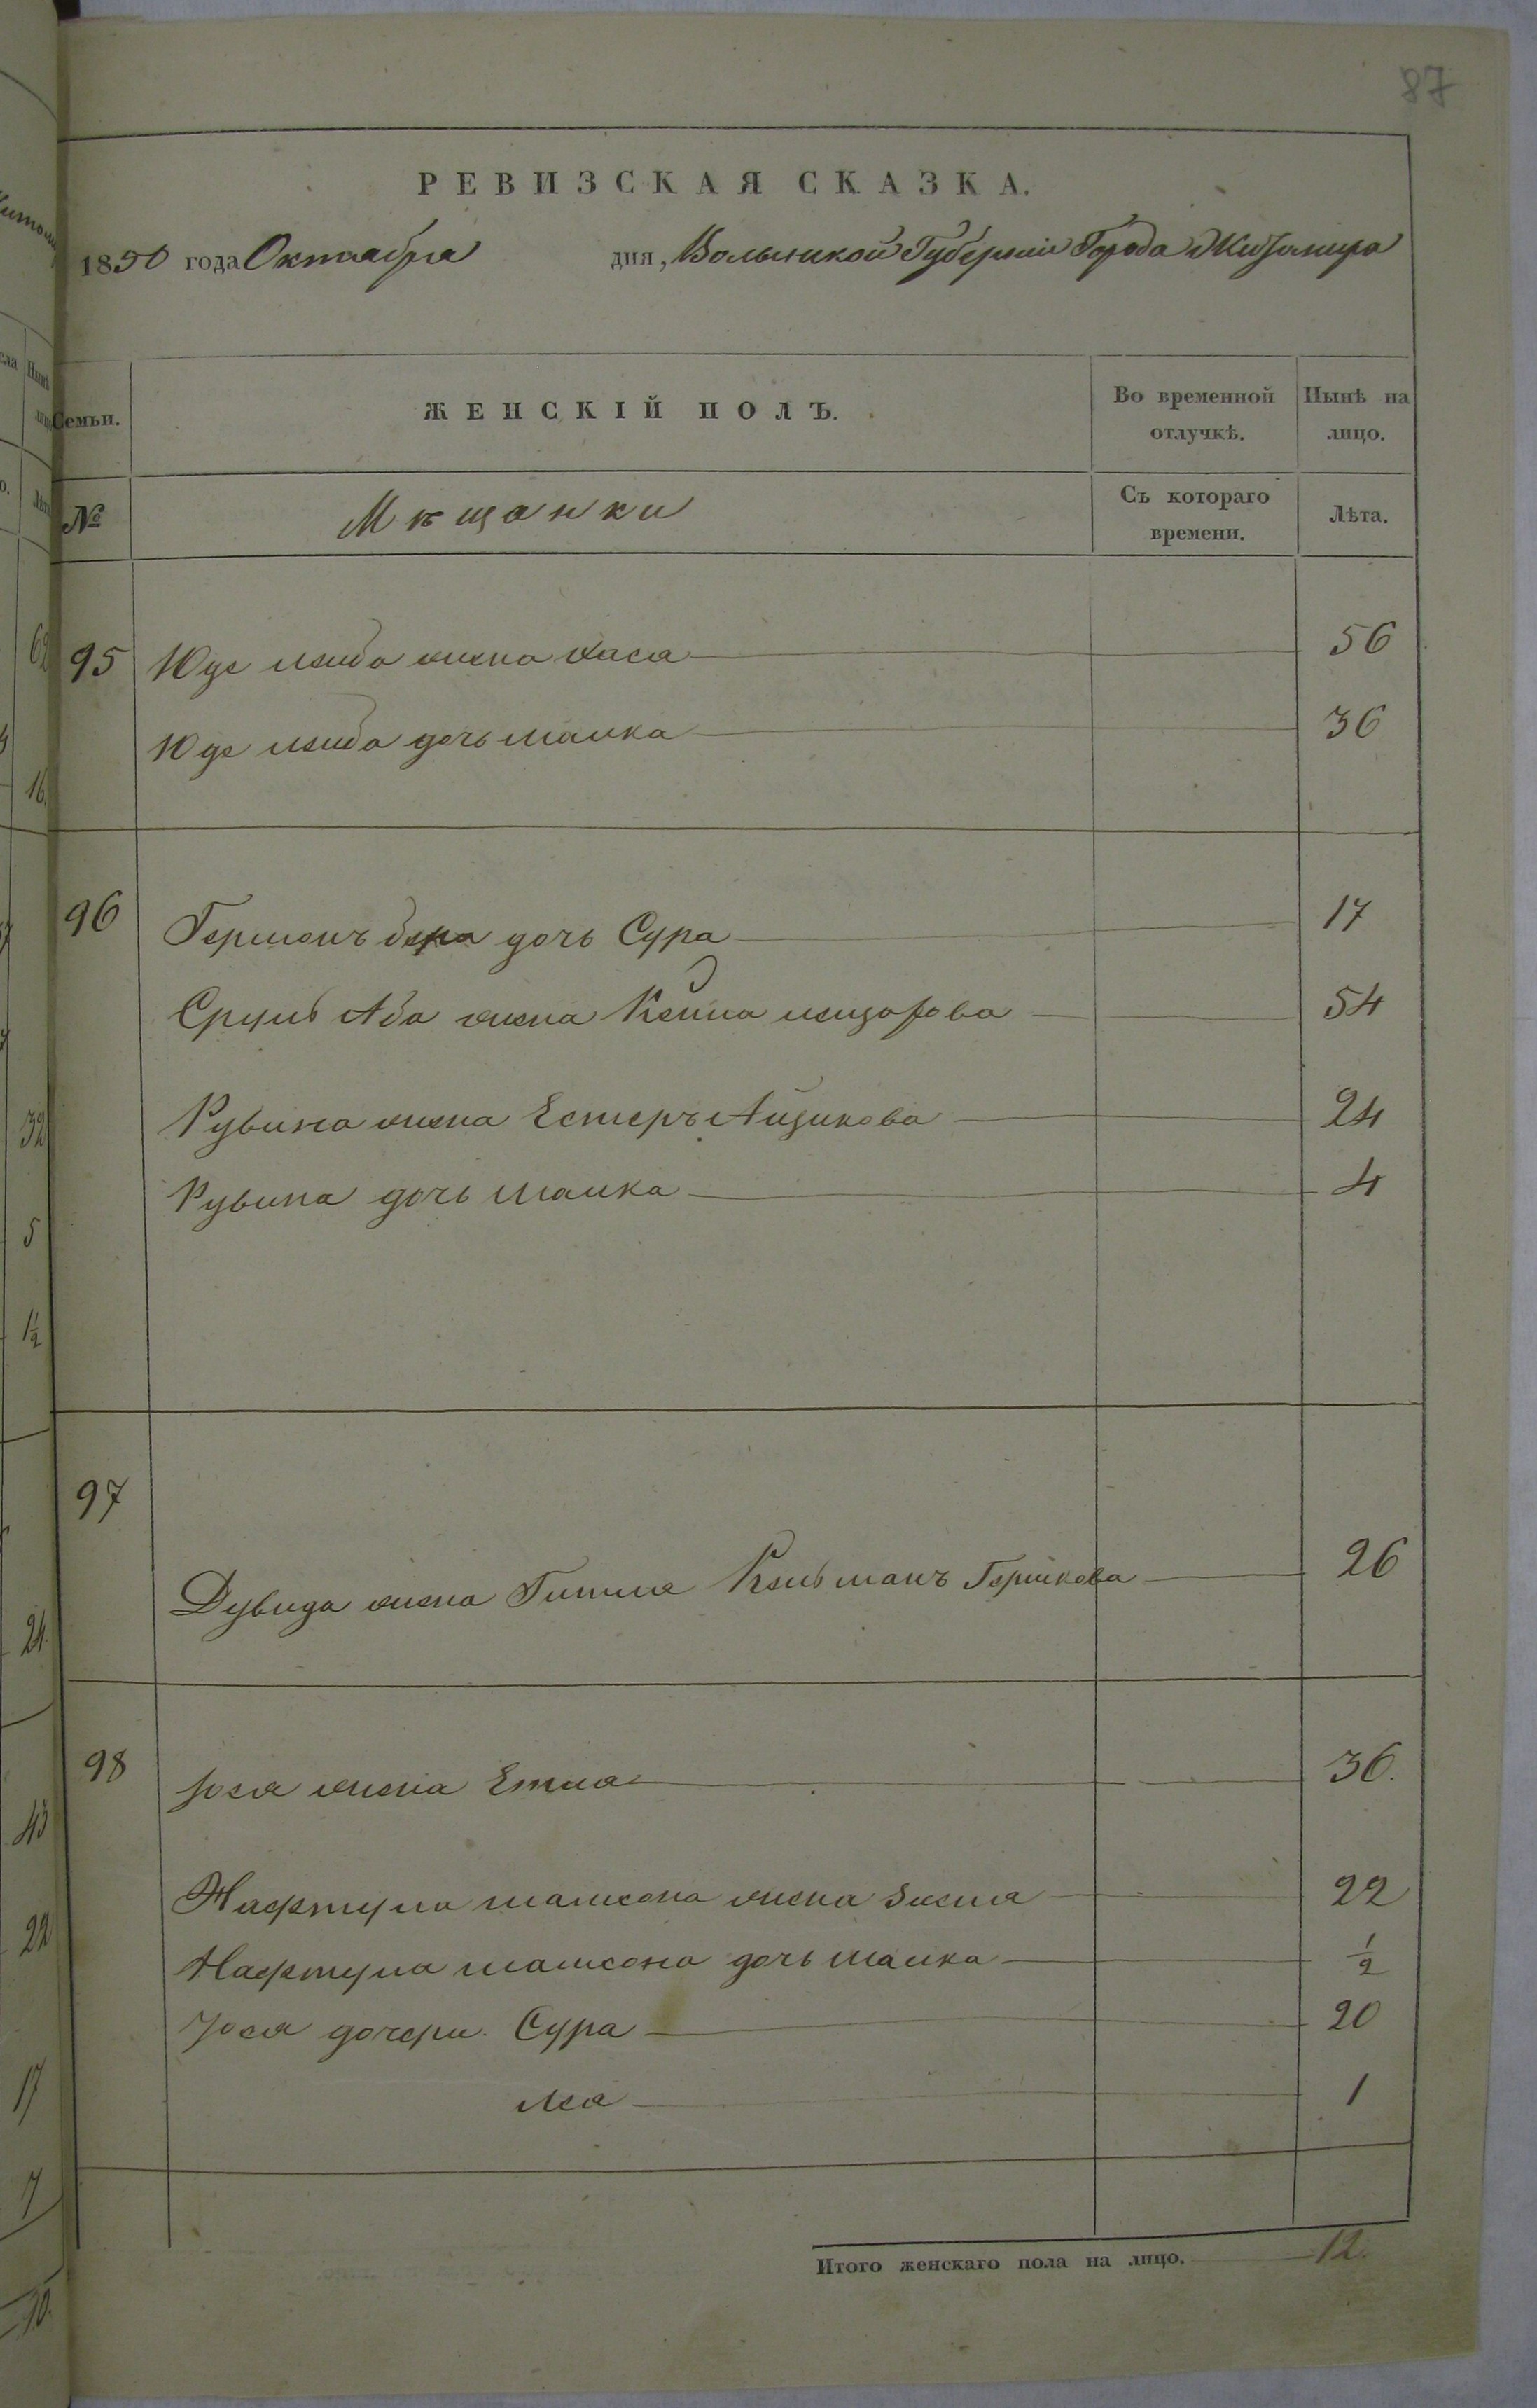 87
РЕВИЗСКАЯ СКАЗКА.
1850 года Октября дня, Волынской Губернии Города Житомира
Семьи. ЖЕНСКІЙ ПОЛЪ. Во временной отлучкѣ. Нынѣ на лицо.
№ Мѣщанки Съ котораго времени. Лѣта.
95 Юде Лейба жена Хася 56
Юде Лейба дочь Малка 36
96 Гершонъ Бера дочь Сура 17
Сруль Аба жена Кейла 54
Рувина жена Естеръ Айзикова 24
Рувина дочь Малка 4
97
Дувида жена Гитля Кельманъ Гершкова 26
98 Іося жена Етля 36.
Нафтула Шамсона жена Зисля 22
Нафтула Шамсона дочь Малка 1/2
Іося дочери Сура 20
Лея 1
Итого женскаго пола на лицо. 12.
62
16.
32
5
1 1/2
21.
43
22
17
7